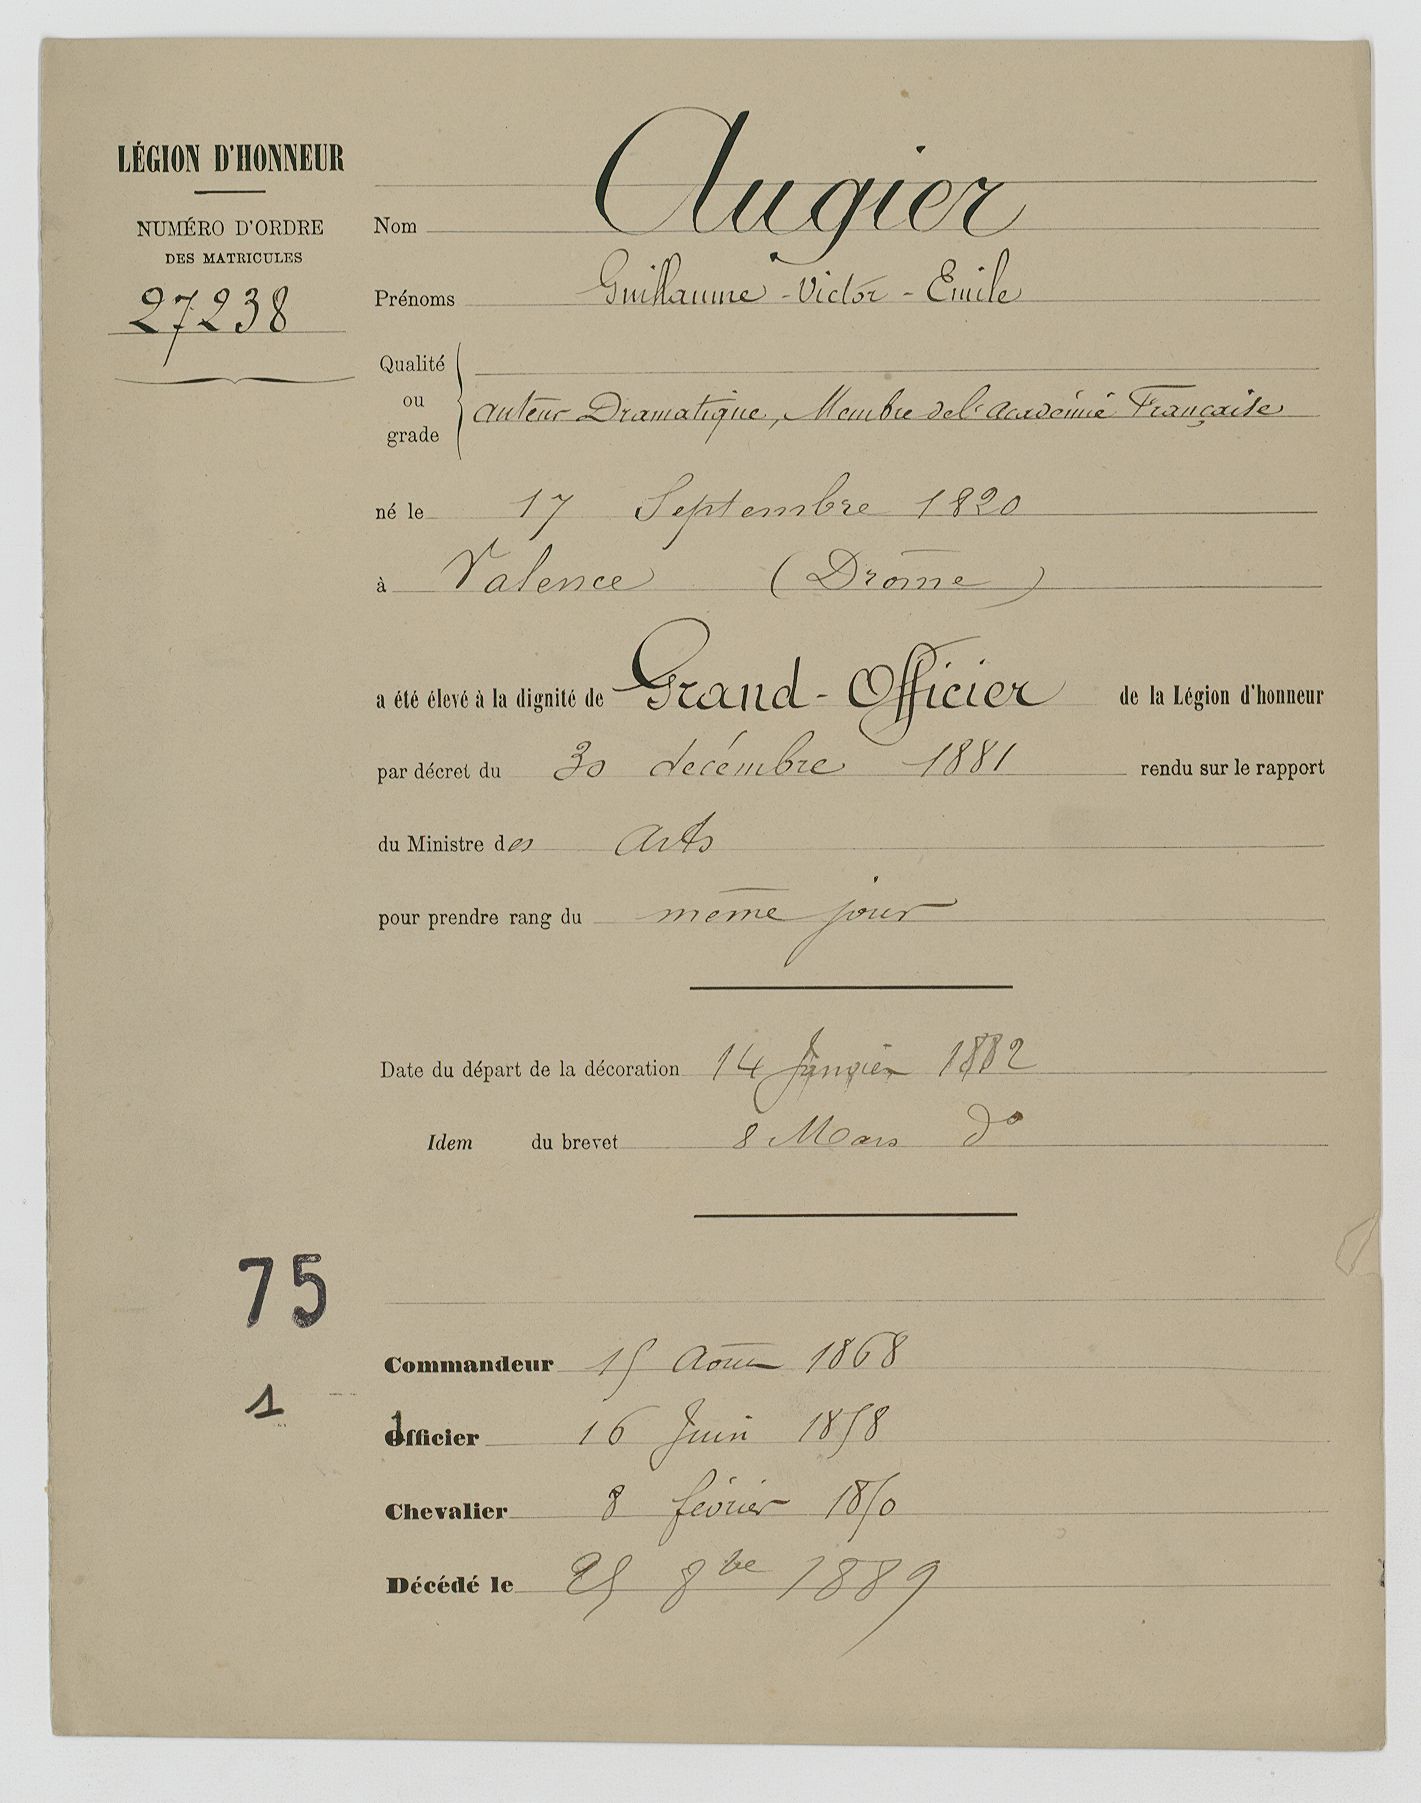 LÉGION D'HONNEUR
NUMÉRO D'ORDRE
DES MATRICULES
27238
Nom Augier
Prénoms Guillaume - Victor - Emile
Qualité
ou
grade
auteur Dramatique, Membre de l'académie Française
né le 17 Septembre 1820
à Valence (Drôme)
a été élevé à la dignité de Grand - Officier de la Légion d'honneur
par décret du 30 décembre 1881 rendu sur le rapport
du Ministre des arts
pour prendre rang du même jour
Date du départ de la décoration 14 Janvier 1882
Idem du brevet 8 Mars do
75
Commandeur 15 Août 1868
1
Officier 16 Juin 1858
Chevalier 8 février 1850
Décédé le 25 8bre 1889